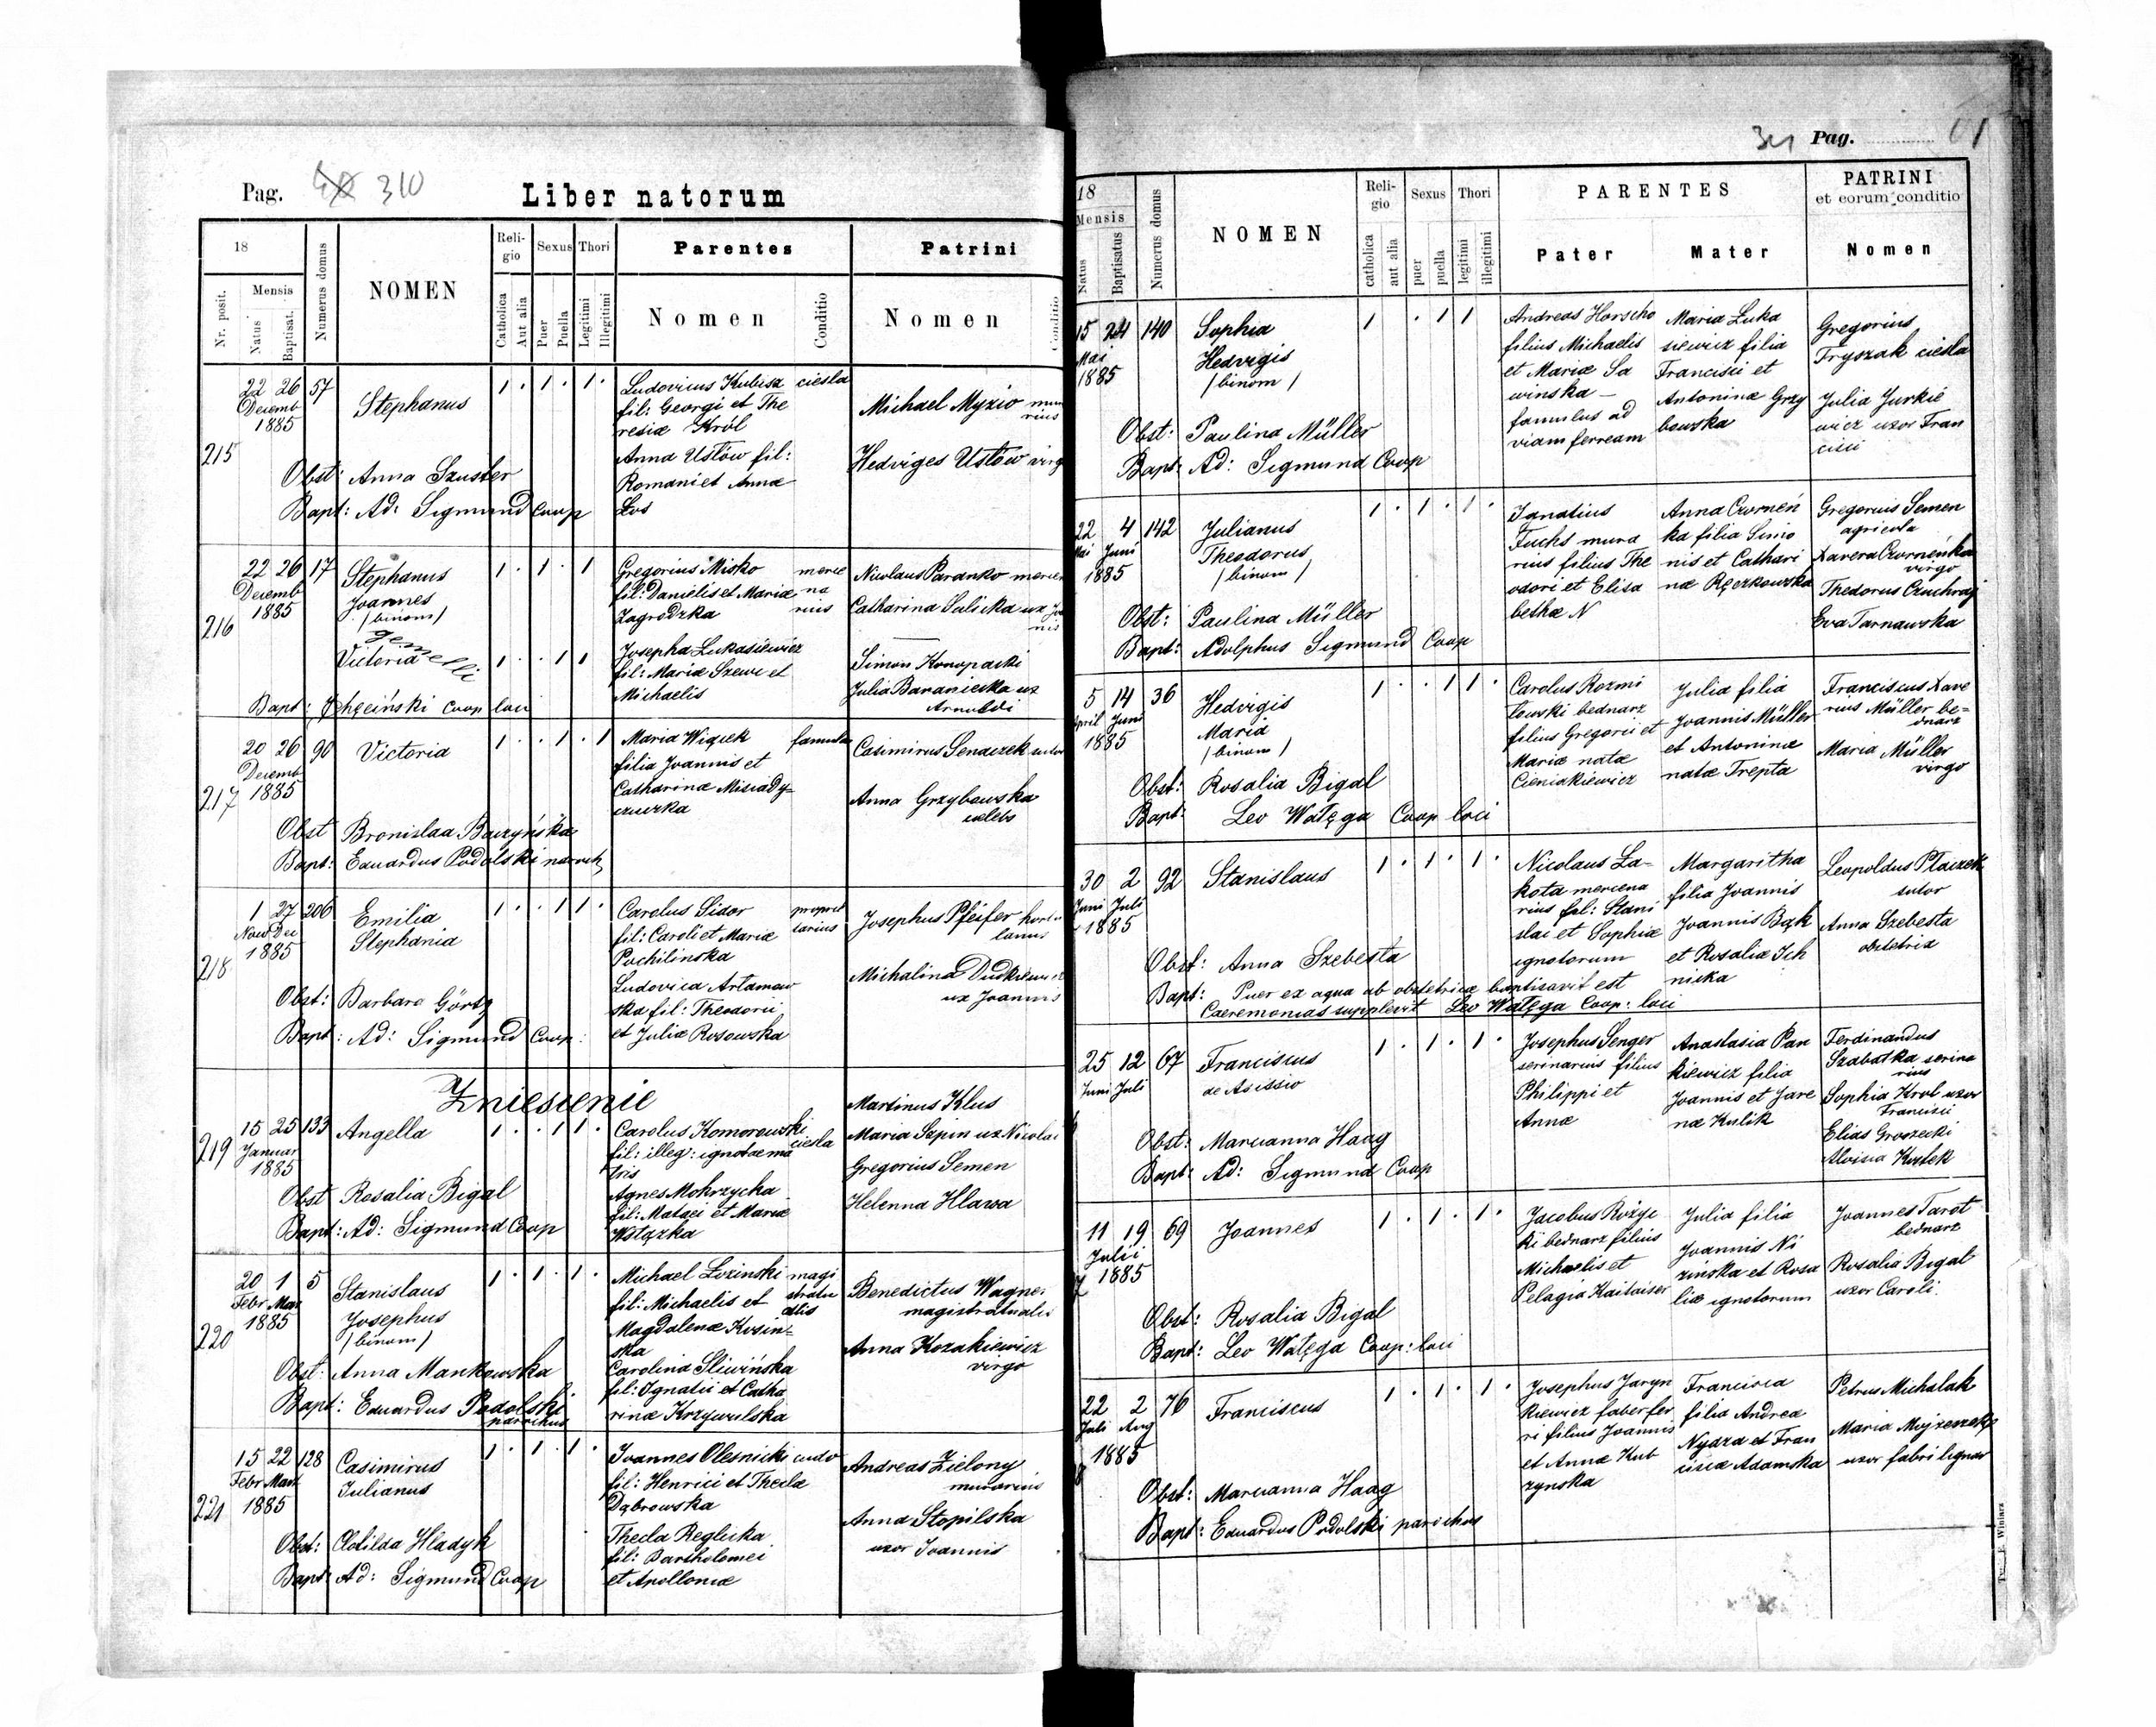 Pag. 310
Liber natorum
18
Nr. posit.
Mensis
Natus
Baptisat.
Numerus domus
NOMEN
Religio
Catholica
Aut alia
Sexus
Puer
Puella
Thori
Legitimi
Illegitimi
Parentes
Nomen
Conditio
Patrini
Nomen
Conditio
215
22 26 57
Decemb
1885
Stephanus
1 . 1 . 1 .
Obst: Anna Szuster
Bapt: Ad: Sigmund Coop
Ludovicus Kubisz ciesla
fil: Georgi et The
resiæ Król
Anna Ustów fil:
Romani et Annæ
Los
Michael Myzio mura
rius
Hedviges Ustów virg
216
22 26 17
Decemb
1885
Stephanus
Joannes
/binom/
gemelli
Victoria
1 . 1 . 1
1 . . 1 1
Bapt: Chęciński Coop loci
Gregorius Misko merce
fil: Danielis et Mariæ na
Zagrodzka rius
Josepha Lukasiewicz
fil: Mariæ Szewc et
Michaelis
Nicolaus Paranko mercen
Catharina Salicka ux Joa
nis
Simon Konopacki
Julia Baraniecka ux
Arnoldi
217
20 26 90
Decemb
1885
Victoria
1 . . 1 . 1
Obst Bronislaa Baczyńska
Bapt: Eduardus Podolski paroch
Maria Wiącek famula
filia Joannis et
Catharinæ Misiady-
Casimirus Senaczek sutor
Anna Grzybowska
celebs
218
1 27 206
Nov Dec
1885
Emilia
Stephania
1 . . 1 1 .
Obst: Barbara Görtz
Bapt: Ad: Sigmund Coop:
Carolus Sidor propriet
fil: Caroli et Mariæ tarius
Pochilinska
Ludovica Artamow
ska fil: Theodorii
et Juliæ Rosowska
Josephus Pfeifer hortu
lanus
Michalina Dudkiewicz
ux Joannis
Zniesienie
219
15 25 133
Januar
1885
Angella
1 . . 1 1 .
Obst Rosalia Bigal
Bapt: Ad: Sigmund Coop
Carolus Komorowski
fil: illeg: ignotæ ma ciesla
tris
Agnes Mokrzycka
fil: Mataei et Mariæ
Wstązka
Martinus Klus
Maria Szpin ux Nicolai
Gregorius Semen
Helenna Hlawa
220
20 1 5
Febr Mar
1885
Stanislaus
Josephus
/binom/
1 . 1 . 1 .
Obst: Anna Mankowska
Bapt: Eduardus Podolski
parochus
Michael Lozinski magi
fil: Michaelis et stratu
Magdalenæ Kosin- alis
ska
Carolina Sliwińska
fil: Ignatii et Catha
rinæ Krzywulska
Benedictus Wagner
magistratualis
Anna Kozakiewicz
virgo
221
15 22 128
Febr Mart
1885
Casimirus
Julianus
1 . 1 . 1 .
Obst: Clotilda Hladyk
Bapt: Ad: Sigmund Coop
Joannes Olesnicki
fil: Henrici et Theclæ
Dąbrowska
Thecla Reglicka
fil: Bartholomei
et Apolloniæ
Andreas Zielony
murarius
Anna Stopilska
uxor Joannis
Pag.
18
Mensis
Natus
Baptisatus
Numerus domus
NOMEN
Religio
catholica
aut alia
Sexus
puer
puella
Thori
legitimi
illegitimi
PARENTES
Pater
Mater
PATRINI
et eorum conditio
Nomen
15 24 140
Mai
1885
Sophia
Hedvigis
/binom/
1 . 1 1
Obst: Paulina Müller
Bapt: Ad: Sigmund Coop
Andreas Horscho
filius Michaelis
et Mariæ Sa
winska -
famulus ad
viam ferream
Maria Luka
siewicz filia
Francisci et
Antoninæ Grzy
bowska
Gregorius
Fryszak ciesla
Julia Jurkie
wicz uxor Fran
cisci
22 4 142
Mai Juni
1885
Julianus
Theodorus
/binom/
1 . 1 . 1 .
Obst: Paulina Müller
Bapt: Adolphus Sigmund Coop
Ignatius
Fuchs mura
rius filius The
odori et Elisa
bethæ N
Anna Czorneń
ka filia Simo
nis et Cathari
næ Ręczkowska
Gregorius Semen
agricola
Xavera Czorneńka
virgo
Thedorus Czuchraj
Eva Tarnawska
5 14 36
April Juni
1885
Hedvigis
Maria
/binom/
1 . . 1 1 .
Obst: Rosalia Bigal
Bapt: Leo Wałęga Coop loci
Carolus Rozmi
lowski bednarz
filius Gregorii et
Mariæ natæ
Cieniakiewicz
Julia filia
Joannis Müller
et Antoninæ
natæ Trepta
Franciscus Xave
rius Müller be-
dnarz
Maria Müller
virgo
30 2 92
Juni Juli
1885
Stanislaus
1 . 1 . 1 .
Obst: Anna Szebesta
Bapt: Puer ex aqua ab obstetrice baptisavit est
Caeremonias supplevit Leo Wałęga Coop: loci
Nicolaus La-
kota mercena
rius fil: Stani
slai et Sophiæ
ignotorum
Margaritha
filia Joannis
Joannis Bąk
et Rosaliæ Ich
nicka
Leopoldus Placzek
sutor
Anna Szebesta
obstetrix
25 12 67
Juni Juli
Franciscus
de Asissio
1 . 1 . 1 .
Obst: Marcianna Haag
Bapt: Ad: Sigmund Coop
Josephus Senger
serinarius filius
Philippi et
Annæ
Anastasia Pan
kiewicz filia
Joannis et Jare
næ Kulik
Ferdinandus
Szabatka serina
rius
Sophia Krol uxor
Francisci
Elias Groszecki
Aloisia Kostek
11 19 69
Julii
1885
Joannes
1 . 1 . 1 .
Obst: Rosalia Bigal
Bapt: Leo Wałęga Coop: loci
Jacobus Rożyc
ki bednarz filius
Michaelis et
Pelagia Kaitaiser
Julia filia
Joannis Ni
zinska et Rosa
liæ ignotorum
Joannes Tarot
bednarz
Rosalia Bigal
uxor Caroli.
22 2 76
Juli Aug
1885
Franciscus
1 . 1 . 1 .
Obst: Marcianna Haag
Bapt: Eduardus Podolski parochus
Josephus Jaryn
kiewicz faber fer
ri filius Joannis
et Annæ Kub
zynska
Francisca
filia Andrea
Nydza et Fran
ciscæ Adamska
Petrus Michalak
Maria
uxor fabri lignar